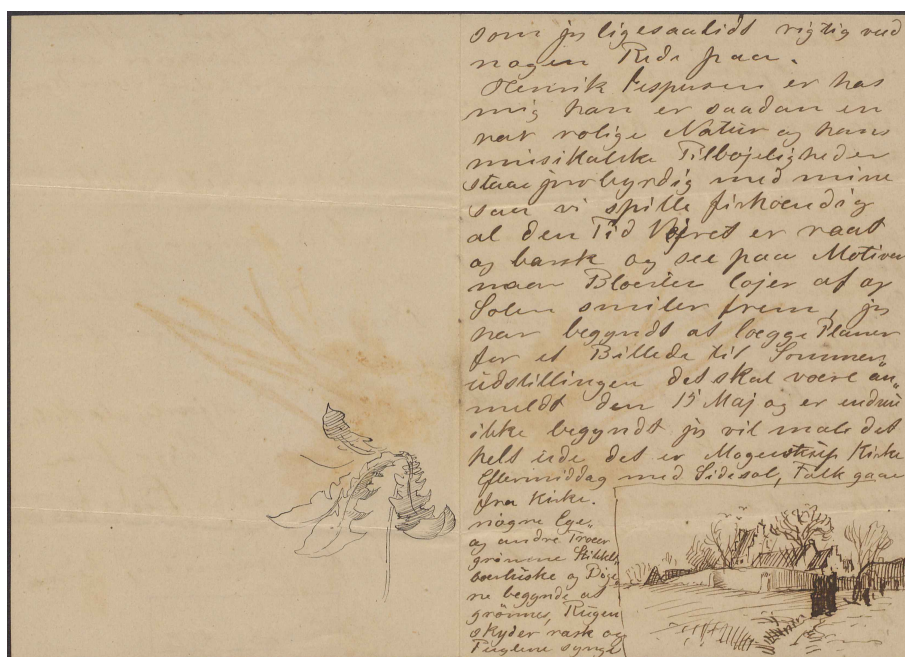 som jeg ligesaalidt rigtig ved
nogen Rede paa.
Henrik Jespersen er hos
mig han er saadan en
rar rolige Natur og hans
musikalske Tilbøjeligheder
staae jevnbyrdig med mine
saa vi spille firhændig
al den Tid Vejret er raat
og barsk og see paa Motiver
naar Blæsten løjer af og
Solen smiler frem, jeg
har begyndt at lægge Planer
for et Billede til Sommer„
udstillingen det skal være an„
meldt den 15 Maj og er endnu
ikke begyndt jeg vil male det
helt ude det er Magerstrup Kirke
Eftermiddag med Sidesol, Folk gaar
fra Kirke.
nogle Ege„
og andre Træer
grønnene Stikkels
bærbuske og Bøge
ne begynde at
grønnes, Rugen
skyder rask og
Fuglene synge